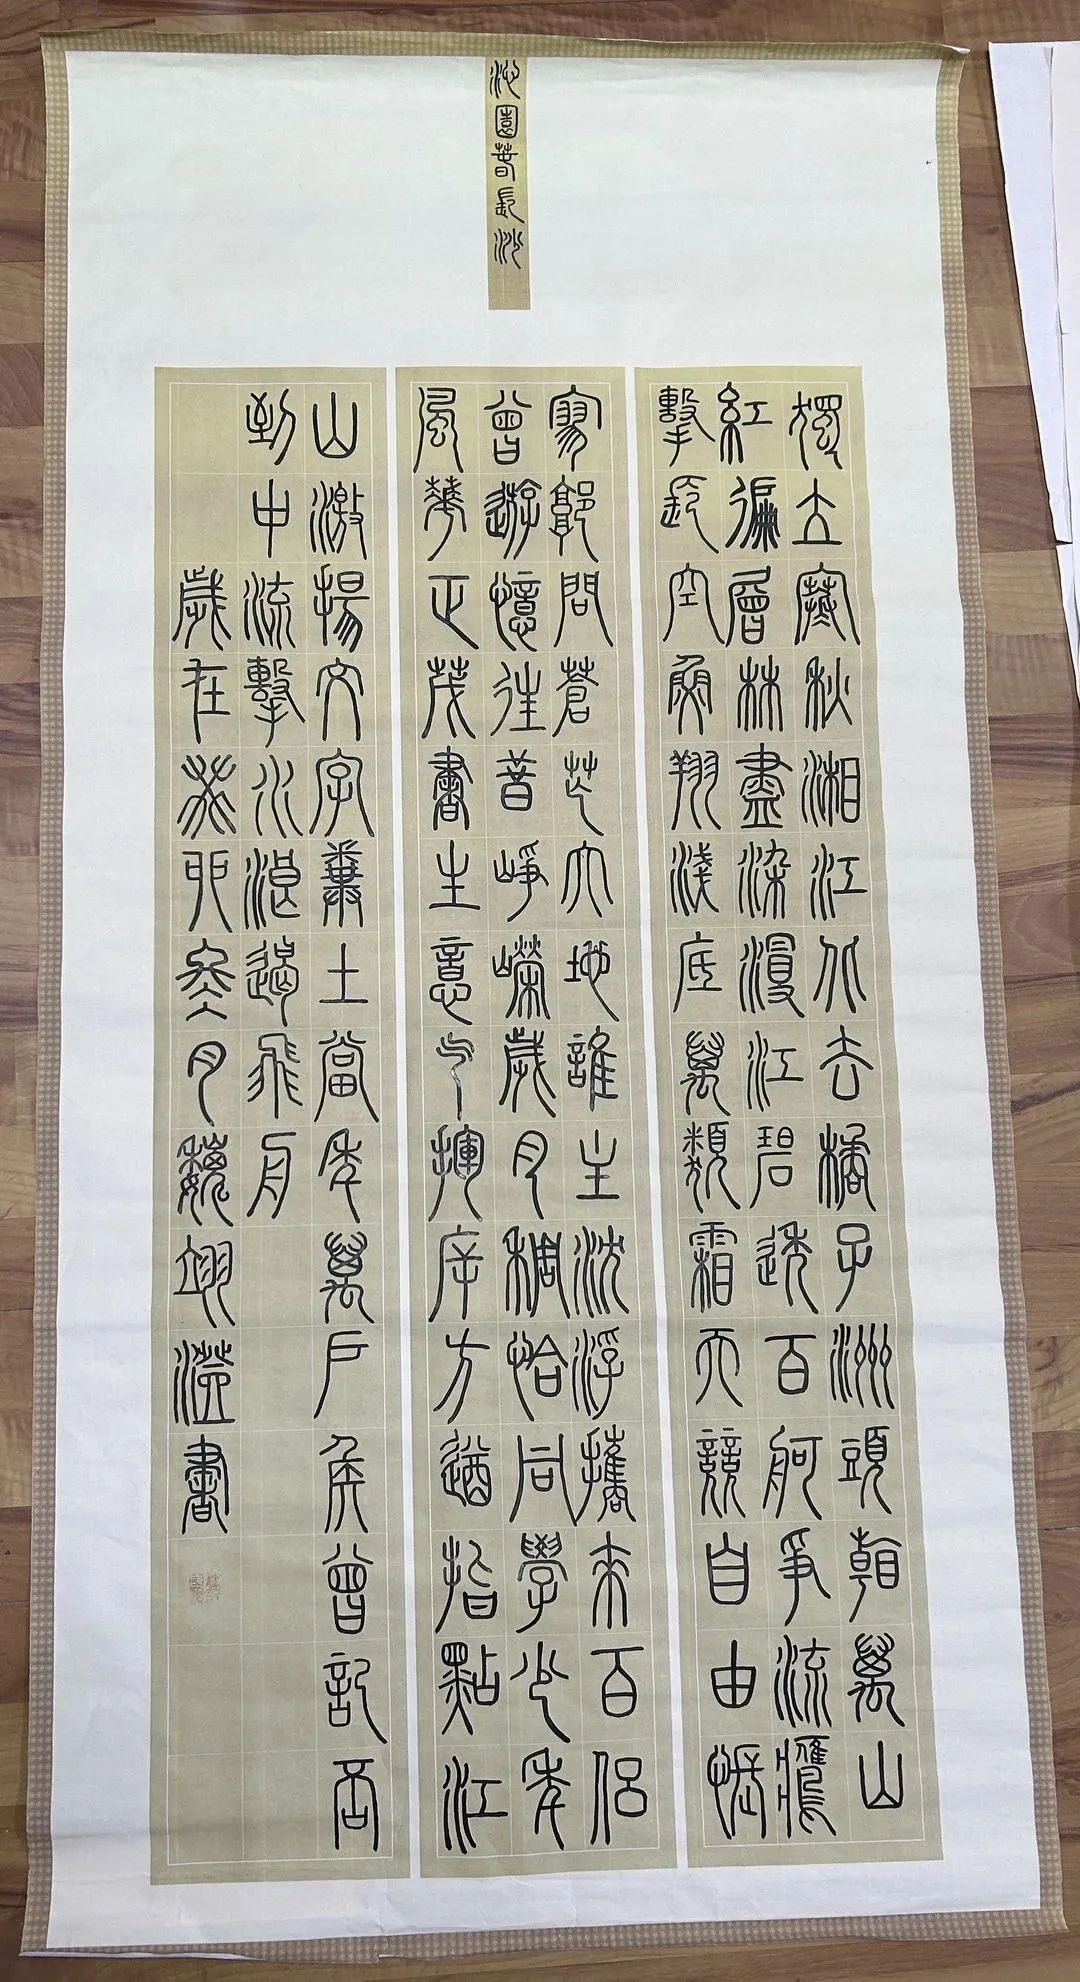 沁園春長沙
獨立寒秋湘江北去橘子洲頭看萬山
紅徧層林盡染漫江碧透百舸爭流鷹
擊長空魚翔淺底萬類霜天競自由悵
寥郭問蒼芒大地誰主沈浮攜來百侶
曾遊憶往昔崢嶸歲月稠恰同學少年
風華正茂書生意气揮斥方遒指點江
山激揚文字糞土當年萬戶侯曾記否
到中流擊水浪遏飛舟
歲在癸卯叁月魏翊瀅書